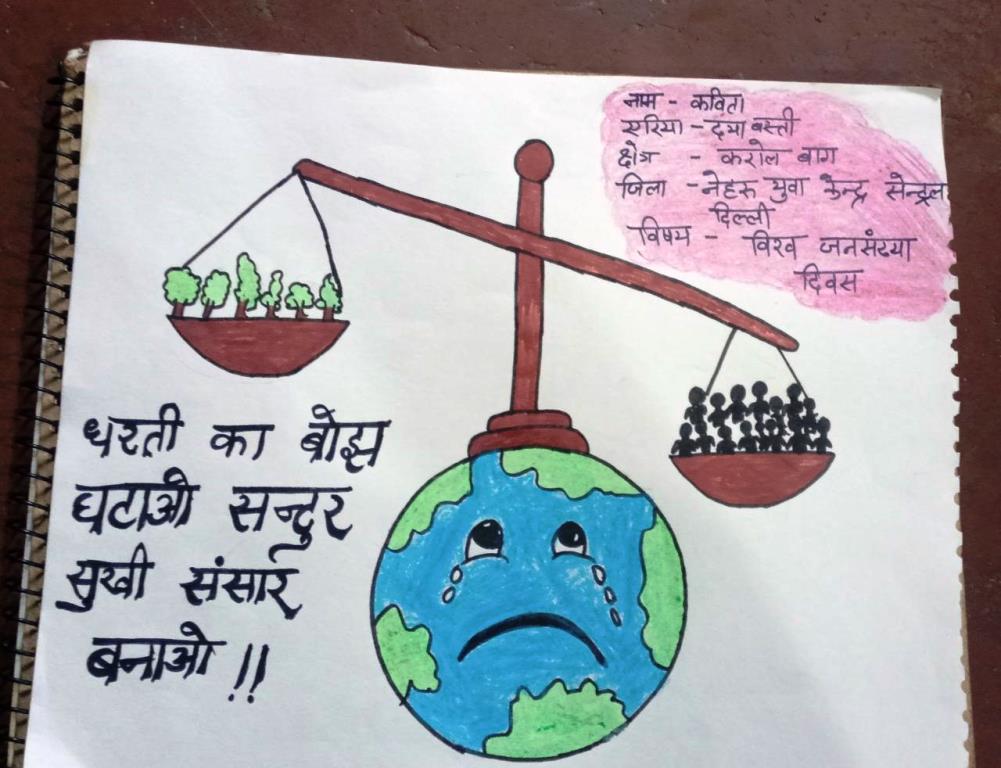 नाम - कविता
एरिया - दया बस्ती
क्षेत्र - करोल बाग
जिला - नेहरू युवा केन्द्र सेन्ट्रल
दिल्ली
विषय - विश्व जनसंख्या
दिवस
धरती का बोझ
घटाओ सन्दुर
सुखी संसार
बनाओ !!